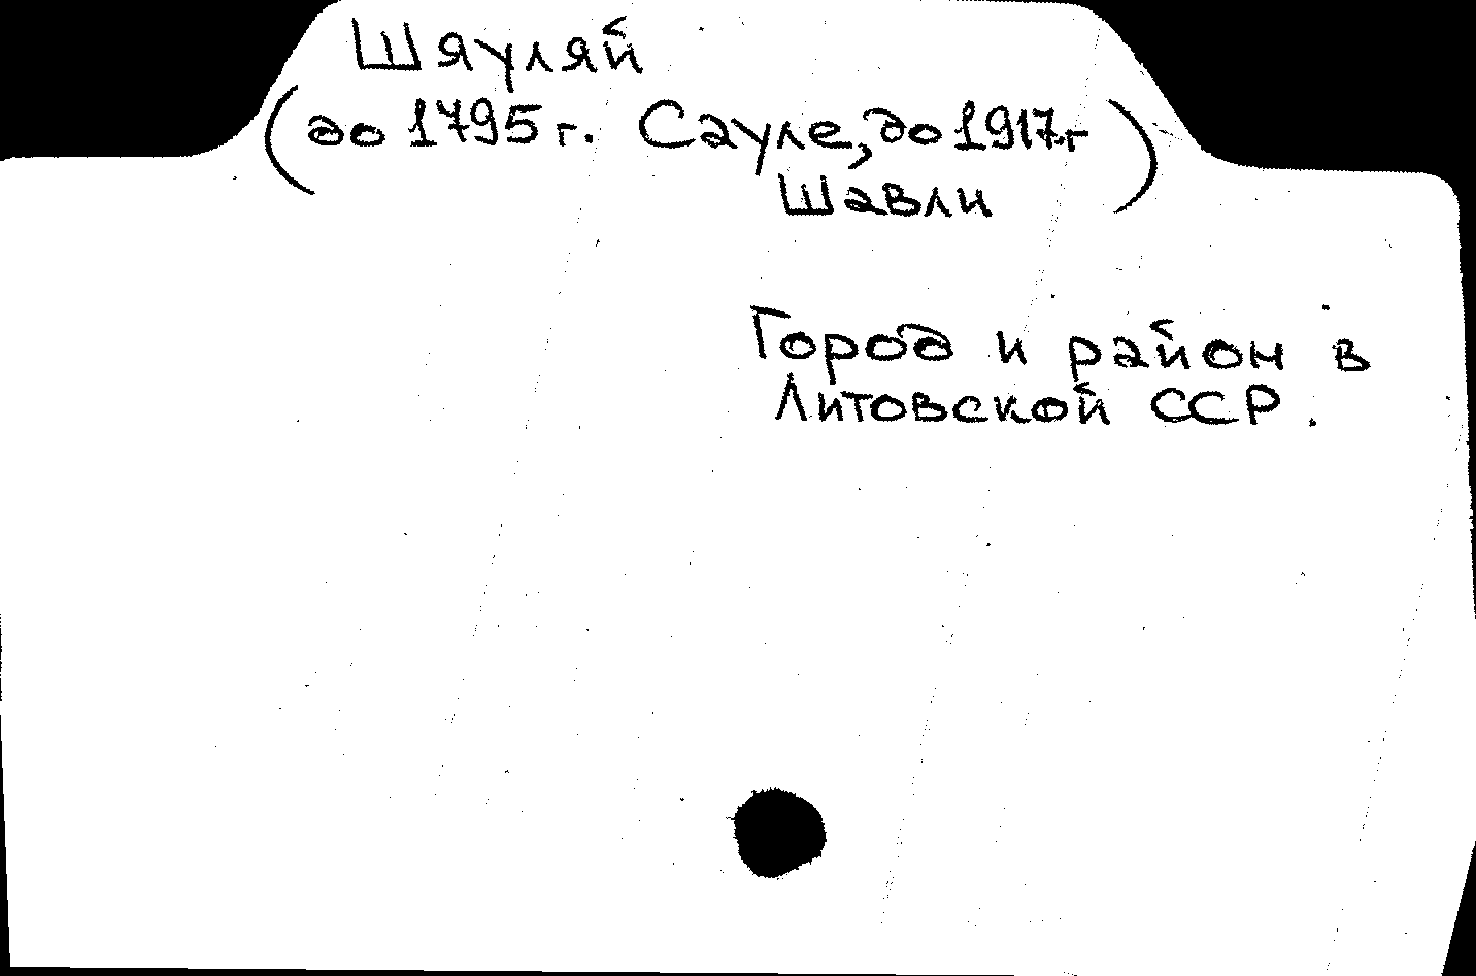 Шяуляй
(до 1795 г. Сауле, до 1917 г
Шавли)
Город и район в
Литовской ССР.